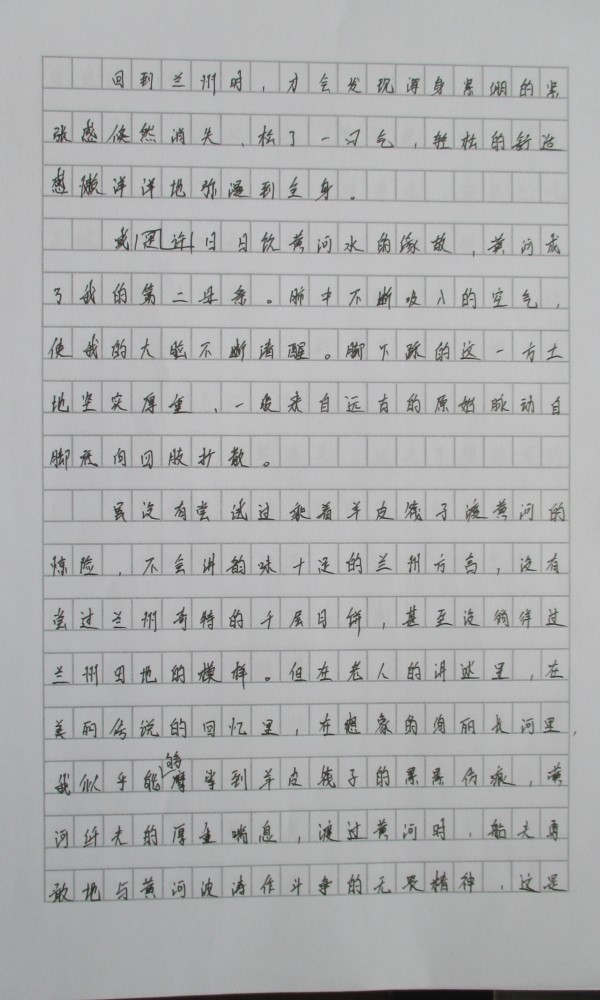 回到兰州时，才会发现浑身紧绷的紧
张感倏然消失，松了一口气，轻松的舒适
感懒洋洋地弥漫到全身。
或许日日饮黄河水的缘故，黄河成
了我的第二母亲。肺中不断吸入的空气，
使我的大脑不断清醒。脚下踩的这一方土
地坚实厚重，一股来自远古的原始脉动自
脚底向四肢扩散。
虽没有尝试过乘着羊皮筏子渡黄河的
惊险，不会讲韵味十足的兰州方言，没有
尝过兰州奇特的千层月饼，甚至没徜徉过
兰州田地的模样。但在老人的讲述里，在
美丽传说的回忆里，在想象的绚丽长河里，
我似乎能够摩挲到羊皮筏子的累累伤痕，黄
河纤夫的厚重喘息，渡过黄河时，船夫勇
敢地与黄河波涛作斗争的无畏精神，这是